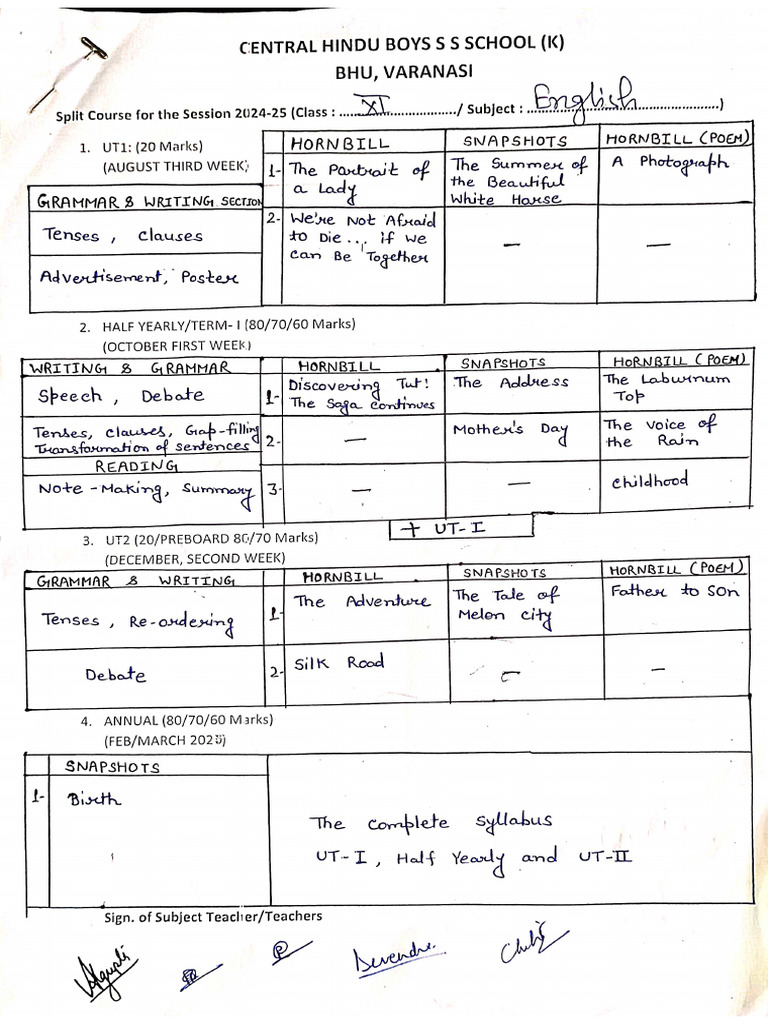 CENTRAL HINDU BOYS S S SCHOOL (K)
BHU, VARANASI
Split Course for the Session 2024-25 (Class : XI / Subject : English )
1. UT1: (20 Marks)
(AUGUST THIRD WEEK)
HORNBILL SNAPSHOTS HORNBILL (POEM)
1- The Portrait of The Summer of A Photograph
a Lady the Beautiful
White Horse
GRAMMAR & WRITING SECTION
Tenses, clauses
2- We're Not Afraid — —
to Die... if We
can Be Together
Advertisement, Poster
2. HALF YEARLY/TERM- I (80/70/60 Marks)
(OCTOBER FIRST WEEK)
WRITING & GRAMMAR HORNBILL SNAPSHOTS HORNBILL (POEM)
Speech, Debate 1- Discovering Tut! The Address The Laburnum
The Saga continues Top
Tenses, clauses, Gap-filling 2- — Mother's Day The Voice of
Transformation of sentences the Rain
READING
Note-Making, Summary 3- — — childhood
+ UT-I
3. UT2 (20/PREBOARD 80/70 Marks)
(DECEMBER, SECOND WEEK)
GRAMMAR & WRITING HORNBILL SNAPSHOTS HORNBILL (POEM)
Tenses, Re-ordering 1- The Adventure The Tale of Father to Son
Melon city
Debate 2- Silk Road — —
4. ANNUAL (80/70/60 Marks)
(FEB/MARCH 2025)
SNAPSHOTS
1- Birth
The complete syllabus
UT-I, Half Yearly and UT-II
Sign. of Subject Teacher/Teachers
Devendra